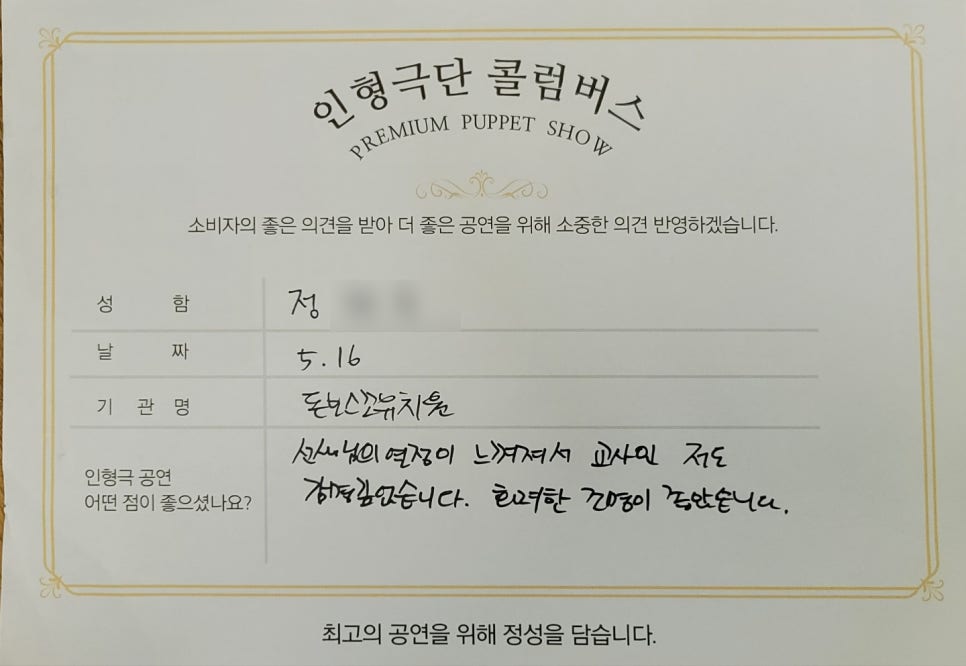 인형극단 콜럼버스
PREMIUM PUPPET SHOW
소비자의 좋은 의견을 받아 더 좋은 공연을 위해 소중한 의견 반영하겠습니다.
성 함 정
날 짜 5.16
기 관 명 돈보스꼬유치원
인형극 공연
어떤 점이 좋으셨나요?
선생님의 열정이 느껴져서 교사인 저도
화려한 조명이 좋았습니다.
최고의 공연을 위해 정성을 담습니다.